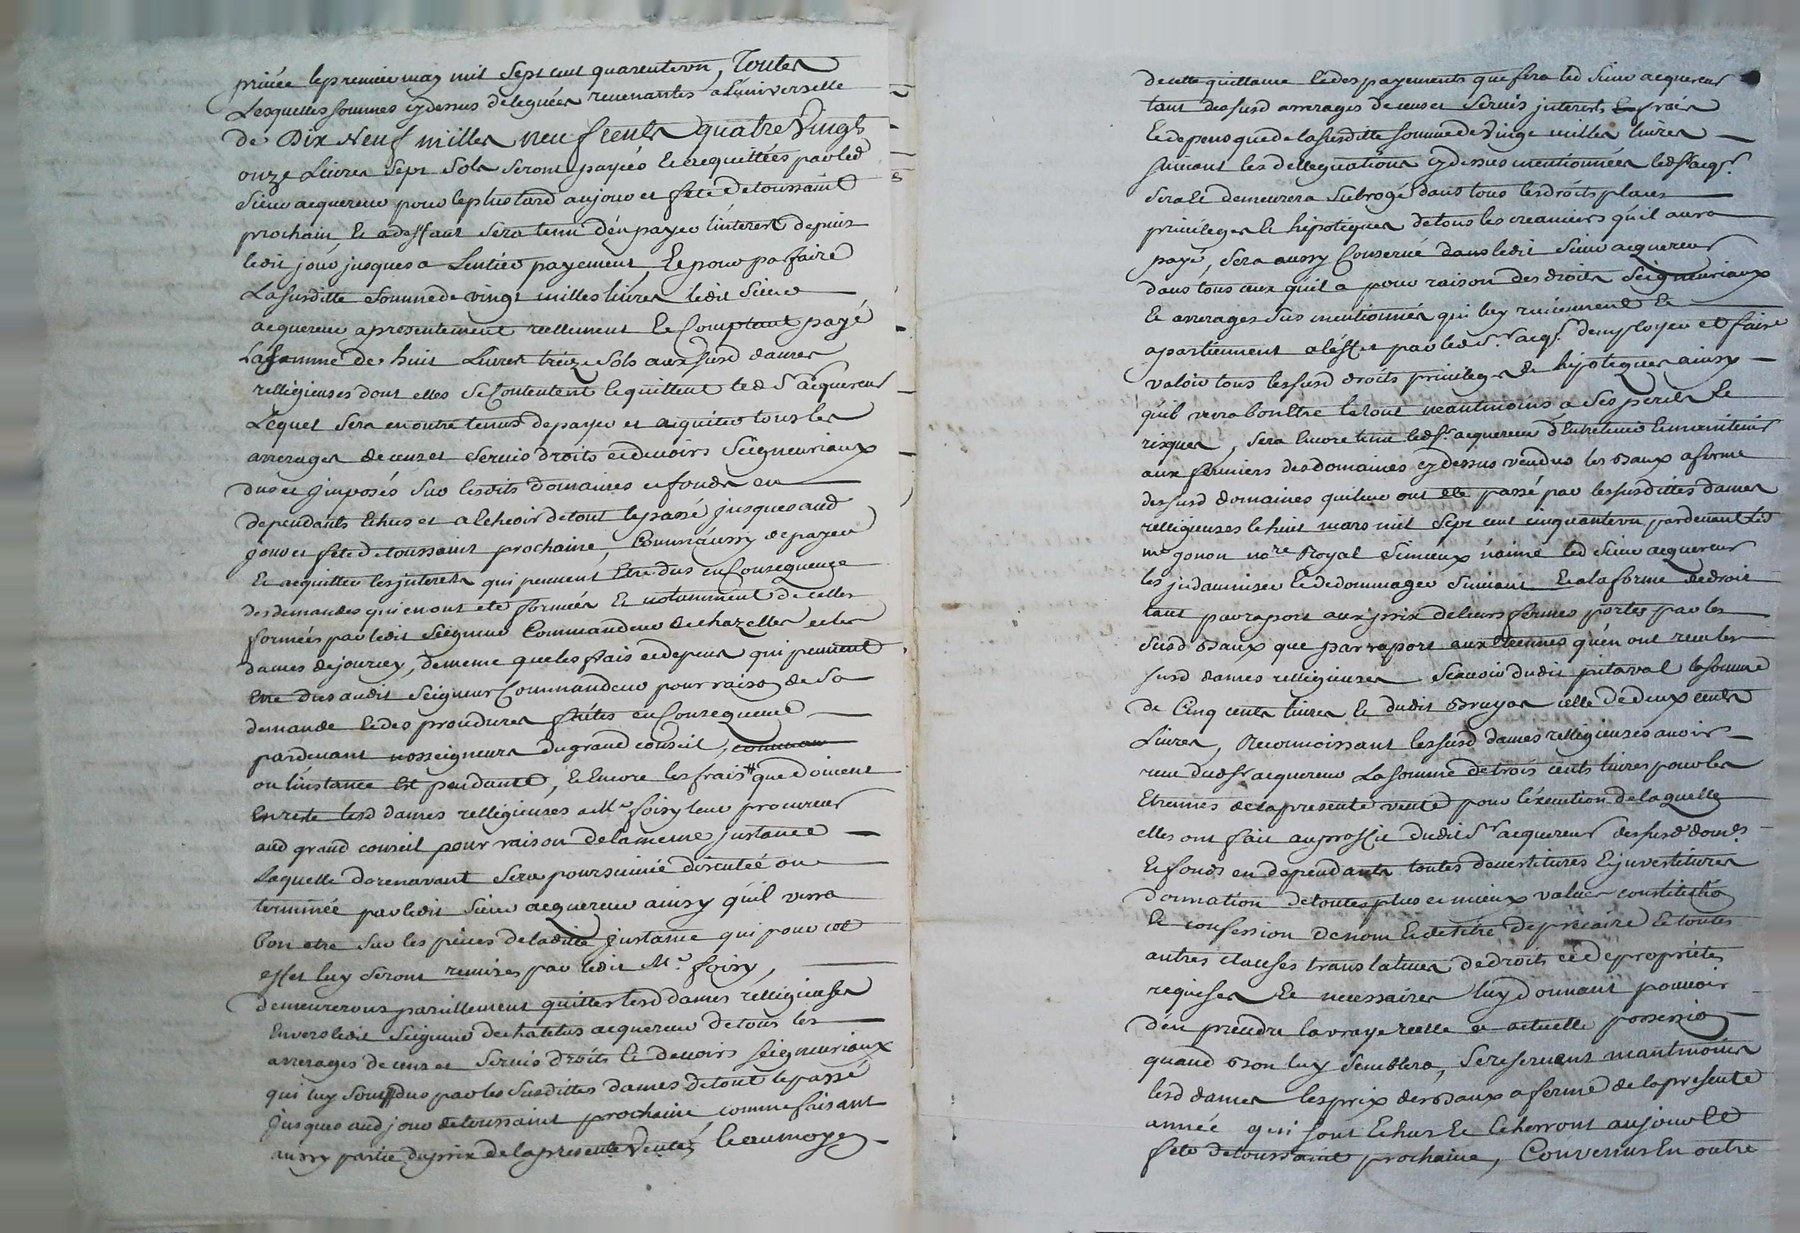 privée le premier may mil sept cent quarente un, Toutes
Lesquelles sommes cy dessus deleguées revenantes a l'universelle
de Dix Neuf milles neuf cents quatre vingt
onze Livres sept sols seront payées et acquittées par led
sieur acquereur pour le plus tard au jour et fete de toussaint
prochain, Et a deffaut sera tenu d'en payer l'interest depuis
ledit jour jusques a l'entier payement Et pour parfaire
La susditte somme de vingt milles livres ledit sieur
acquereur a presentement reellement Et Comptant payé
La somme de huit Livres treize sols aux susd dames
relligieuses dont elles se Contentent et quittent led Sr acquereur
Lequel sera en outre tenus de payer et acquiter tous les
arrerages de cens et servis droits et devoirs seigneuriaux
dus et imposés sur lesdits domaines et fonds en
dependants Echus et a Echeoir de tout le passé jusques aud
jour et fete de toussaint prochaine, Comm'aussy de payer
Et acquitter les interets qui peuvent Etre dus en Consequence
des demandes qui en ont eté formées Et notamment de celles
formées par ledit seigneur Commandeur de chazelles et les
dames de jourcey, de meme que les frais et depens qui peuvent
Etre dus audit seigneur Commandeur pour raison de sa
demande Et des procedures faites en Consequence
pardevant nosseigneurs du grand conseil,
ou l'instance Est pendante, Et Encore les frais # que doivent
En reste lesd dames relligieuses a Me foisy leur procureur
aud grand conseil pour raison de la meme instance
Laquelle dorenavant sera poursuivie discutée ou
terminée par ledit sieur acquereur ainsy qu'il verra
bon etre sur les pièces de laditte instance qui pour cet
effet luy seront remises par ledit Me foisy,
demeurerons pareillement quittes lesd dames relligieuses
Envers ledit seigneur de chatelus acquereur de tous les
arrerages de cens et servis droits Et devoirs seigneuriaux
qui luy sont dus par les susdittes dames de tout le passé
jusques aud jour de toussaint prochaine comme faisant
aussy partie du prix de la presente vente, Et au moyen
de cette quittance Et des payements que fera led sieur acquereur
tant des susd arrerages de cens et servis interets frais
Et depens que de la susditte somme de vingt milles livres
suivant les dellegations cy dessus mentionnées led sr acqr.
sera Et demeurera subrogé dans tous les droits places
privileges Et hipoteques de tous les creanciers qu'il aura
payé, sera aussy Conservé dans ledit sieur acquereur
dans tous ceux qu'il a pour raison des droits seigneuriaux
Et arrerages sus mentionnés qui luy reviennent Et
apartiennent a l'effet par led sr. acqr. d'employer et faire
valoir tous les susd droits privileges Et hipoteques ainsy
qu'il verra bon Etre le tout neantmoins a ses perils Et
risques, sera Encore tenu led sr. acquereur d'Entretenir Et maintenir
aux fermiers des domaines cy dessus vendus les baux a ferme
des susd domaines qui leur ont eté passé par les susdittes dames
relligieuses le huit mars mil sept cent cinquante un pardevant led
me gonon nore Royal si mieux n'aime led sieur acquereur
les indamniser Et dedommager suivant Et a la forme de droit
tant par raport aux prix de leurs fermes portés par les
susd baux que par raport aux Etrennes qu'en ont receu les
susd dames relligieuses scavoir dudit putaval la somme
de Cinq cents livres Et dudit bruyas celle de deux cents
Livres, Reconnoissant les susd dames relligieuses avoir
receu dud sr acquereur La somme de trois cents livres pour les
Etrennes de la presente vente pour l'execution de laquelle
elles ont fait au proffit dudit sr acquereur des susd domes
Et fonds en dependants toutes devestitures Et investitures
donnation de toutes plus et mieux values constitution
Et confession de nom Et de titre de precaire Et toutes
autres clauses translatives de droits et de propriétés
requises Et necessaires luy donnant pouvoir
d'en prendre la vraye reelle et actuelle possession
quand bon luy semblera, se reservent neantmoins
lesd dames les prix des baux a ferme de la presente
année qui sont Echus Et Echerront au jour et
fete de toussaint prochaine, Convenus En outre